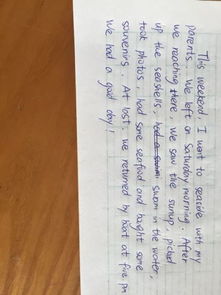 This weekend I want to seaside with my
parents. We left on Saturday morning. After
we reaching there, We saw the sunup, picked
up the seashells, swam in the water,
took photos, had some seafood and bought some
souvenirs. At last, we returned by boat at five pm
We had a good day!